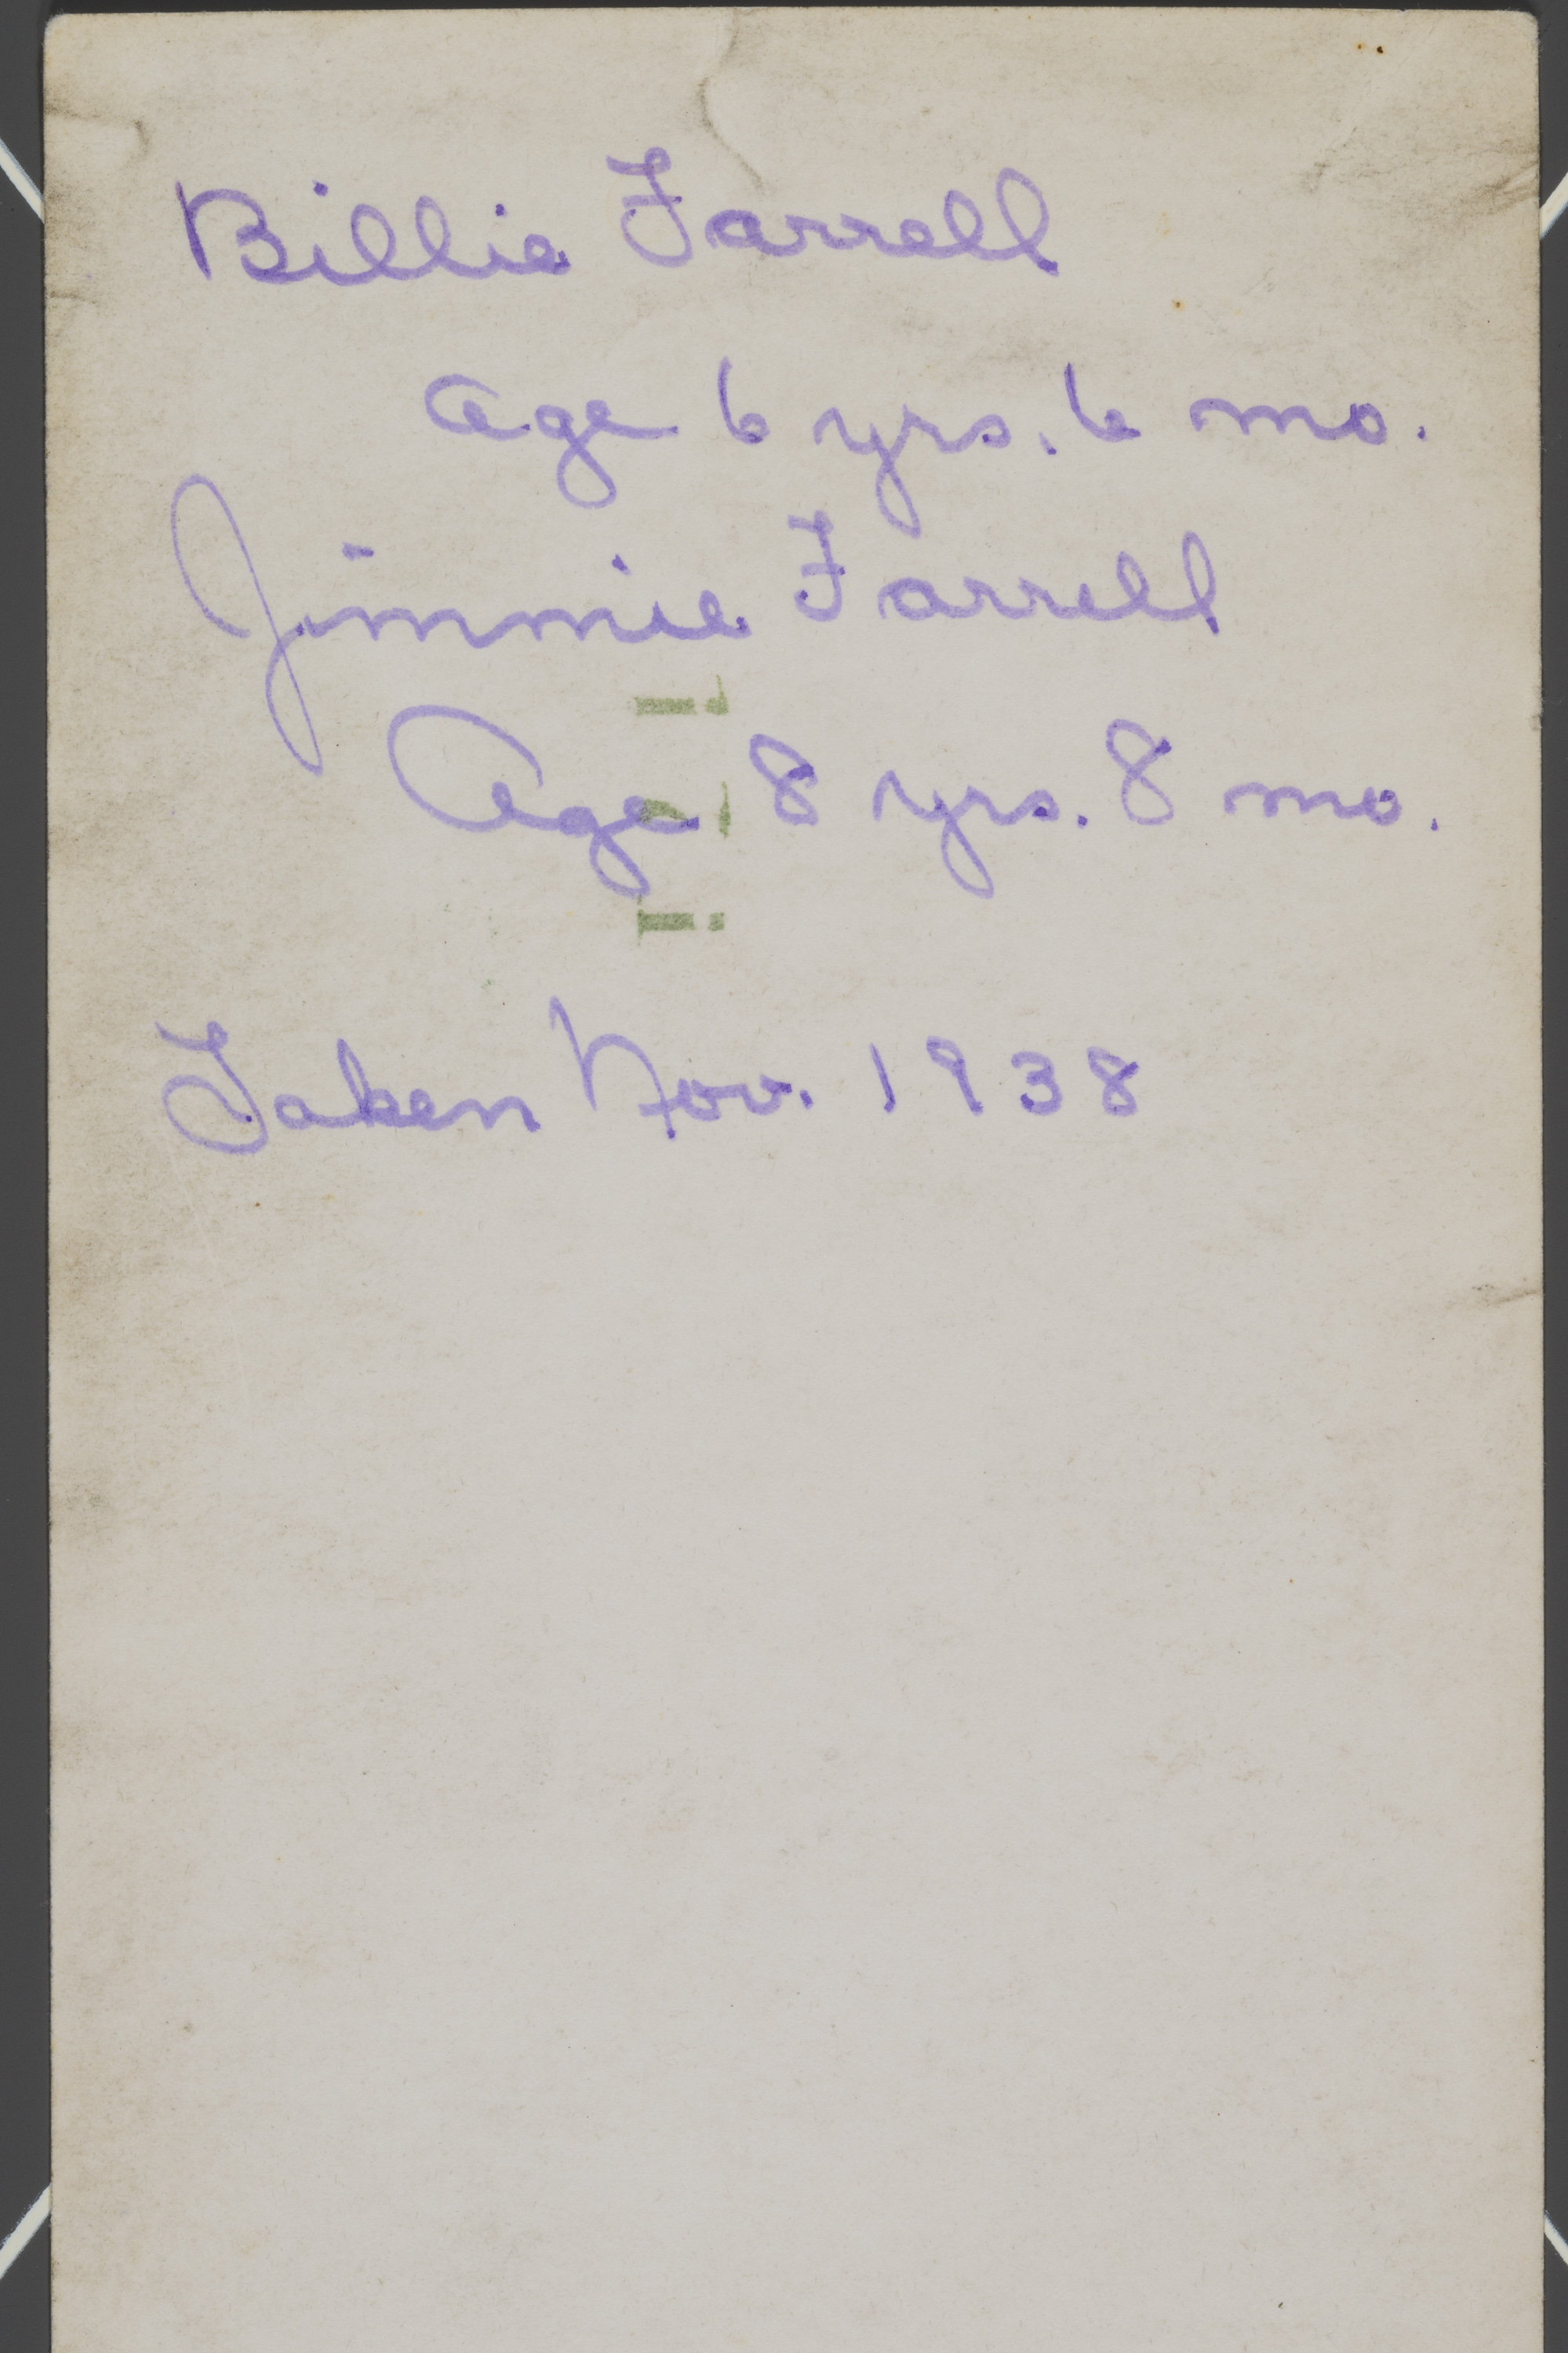 Billie Farrell
age 6 yrs. 6 mo.
Jimmie Farrell
Age 8 yrs. 8 mo.
Taken Nov. 1938